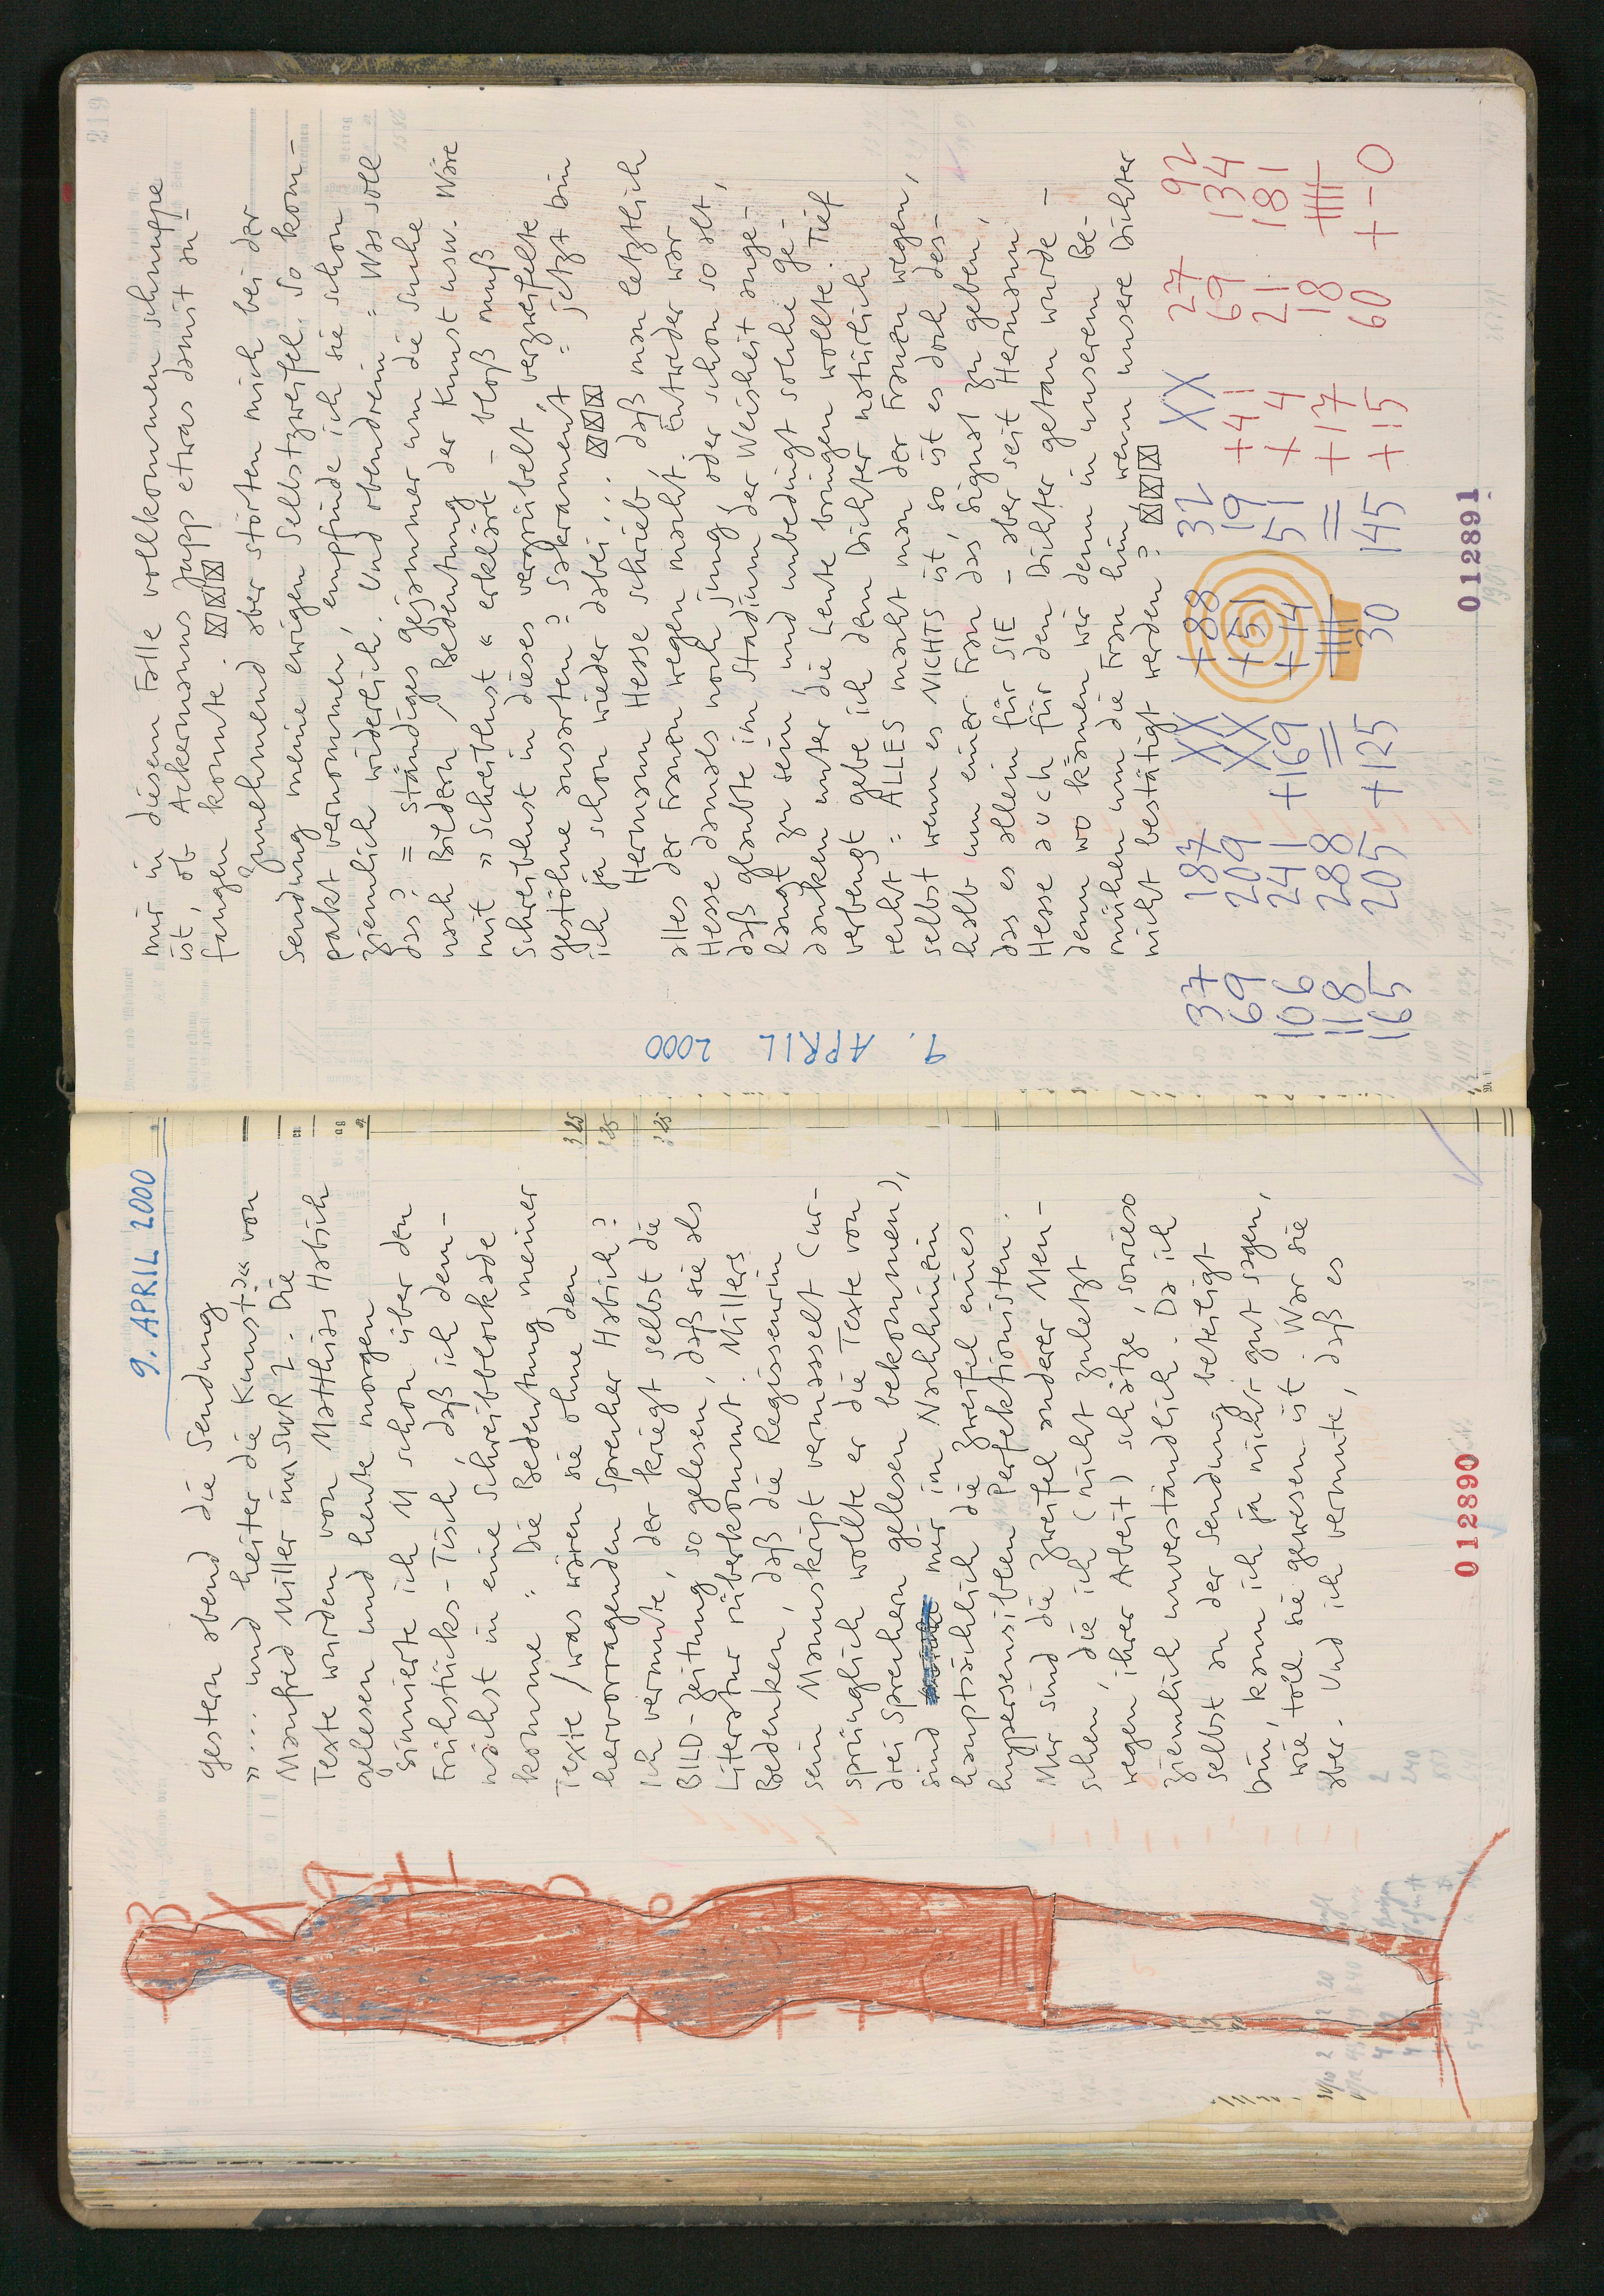 9. APRIL 2000
gestern abend die Sendung
"... und heiter die Kunst?" von
Manfred Miller im SWR 2. Die
Texte wurden von Matthias Habich
gelesen und heute morgen
sinnierte ich M schon über den
Frühstücks-Tisch, daß ich dem-
nächst in eine Schreibblockade
komme: Die Bedeutung meiner
Texte / was wären sie ohne den
hervorragenden Sprecher Habich?
Ich vermute, der kriegt selbst die
BILD-Zeitung so gelesen, daß sie als
Literatur rüberkommt. Millers
Bedenken, daß die Regisseurin
sein Manuskript vermasselt (ur-
sprünglich wollte er die Texte von
drei Sprechern gelesen bekommen),
sind mir im Nachhinein
hauptsächlich die Zweifel eines
hypersensiblen Perfektionisten.
Mir sind die Zweifel anderer Men-
schen, die ich (nicht zuletzt
wegen ihrer Arbeit) schätze, sowieso
ziemlich unverständlich. Da ich
selbst an der Sendung beteiligt
bin, kann ich ja nicht gut sagen,
wie toll sie gewesen ist. War sie
aber. Und ich vermute, daß es
012890
mir in diesem Falle vollkommen schnuppe
ist, ob Ackermanns Jupp etwas damit an-
fangen konnte.
Zunehmend aber störten mich bei der
Sendung meine ewigen Selbstzweifel. So kom-
pakt vernommen, empfinde ich sie schon
ziemlich widerlich. Und obendrein: Was soll
das? = ständiges Gejammer um die Suche
nach Bildern / Bedeutung der Kunst usw. Wäre
mit "Schreiblust" erklärt - bloß muß
Schreiblust in dieses vergrübelt, verzweifelte
Gestöhne ausarten? Sakrament: jetzt bin
ich ja schon wieder dabei...
Hermann Hesse schrieb, daß man letztlich
alles der Frauen wegen macht. Entweder war
Hesse damals noch jung, oder schon so alt,
daß glaubte im Stadium der Weisheit ange-
langt zu sein, und unbedingt solche Ge-
danken unter die Leute bringen wollte. Tief
verbeugt gebe ich dem Dichter natürlich
recht: ALLES macht man der Frauen wegen,
selbst wenn es NICHTS ist, so ist es doch des-
halb um einer Frau das Signal zu geben,
das es allein für SIE - aber seit Hermann
Hesse auch für den Dichter getan wurde -
denn wo kämen wir denn in unserem Be-
mühen um die Frau hin, wenn unsere Dichter
nicht bestätigt werden?
9. APRIL 2000
37 187 XX +88 32 XX 27 92
69 209 XX +51 19 +41 69 134
106 241 +169 +14 51 +4 21 181
118 288 = = +17 18
165 205 +125 30 145 +15 60 +-0
012891